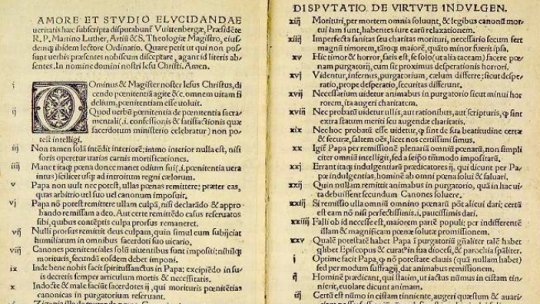 AMORE ET STUDIO ELUCIDANDAE
ueritatis hæc subscripta disputabunt Vuittenbergæ, Præsidēte
R. P. Martino Luther, Artiū & S. Theologiæ Magistro, eius-
demq́; ibidem lectore Ordinario. Quare petit ut qui non pos-
sunt uerbis præsentes nobiscum disceptare, agant id literis ab-
sentes. In nomine domini nostri Iesu Christi. Amen.
i
DOminus & Magister noster Iesus Christus, di-
cendo pœnitentiā agite &c. omnem uitam fi
delium, pœnitentiam esse uoluit.
ij Quod uerbū pœnitentiæ de pœnitentia sacra-
mentali (.i. confessionis & satisfactionis quæ
sacerdotum ministerio celebratur) non po-
test intelligi.
iij Non tamen solā intēdit interiorē; immo interior nulla est, nisi
foris operetur uarias carnis mortificationes.
iiij Manet itaq́; pœna donec manet odium sui
uera intus) scilicet usq́; ad introitum regni cælorum.
v Papa non uult nec potest, ullas pœnas remittere; præter eas,
quas arbitrio uel suo uel canonum imposuit.
vi Papa nō potest remittere ullam culpā, nisi declarādo & appro-
bando remissam a deo, Aut certe remittēdo casus reseruatos
sibi, quibus contēptis culpa prorsus remaneret.
vij Nulli prorsus remittit deus culpam, quin simul eum subijciat
humiliatum in omnibus sacerdoti suo uicario.
viij Canones pœnitentiales solū uiuentibus sunt impositi; nihilq́;
morituris, secundū eosdem debet imponi.
ix Inde bene nobis facit spiritussanctus in Papa; excipiēdo in su-
is decretis semper articulum mortis & necessitatis.
x Indocte & male faciūt sacerdotes ij, qui morituris pœnitētias
canonicas in purgatorium reseruant.
DISPVTATIO DE VIRTVTE INDVLGEN.
xiij Morituri, per mortem omnia soluunt, & legibus canonū mor
tui iam sunt, habentes iure earū relaxationem.
xiiij Imperfecta sanitas seu charitas morituri, necessario secum fert
magnū timorem, tantoq́; maiorē, quāto minor fuerit ipsa.
xv Hic timor & horror, satis est, se solo (ut alia taceam) facere pœ-
nam purgatorij, cum sit proximus desperationis horrori.
xvi Videntur, infernus, purgatorium, cælum differre; sicut despe-
ratio, prope desperatio, securitas differunt.
xvij Necessarium uidetur animabus in purgatorio sicut minui hor-
rorem, ita augeri charitatem.
xviij Nec probatū uidetur ullis, aut rationibus, aut scripturis, q sint
extra statum meriti seu augendæ charitatis.
xix Nec hoc probatū esse uidetur, q sint de sua beatitudine certæ
& securæ, saltem oēs, licet nos certissimi simus.
xx Igit Papa per remissionē plenariā omniū pœnarū, non simpli
citer omniū intelligit, sed a seipso tātūmodo impositarū.
xxi Errant itaq́; indulgentiarū prædicatores ij, qui dicunt per Pa-
pæ indulgentias, hominē ab omni pœna solui & saluari.
xxij Quin nullam remittit animabus in purgatorio, quā in hac ui-
ta debuissent secundum Canones soluere.
xxiij Si remissio ulla omniū omnino pœnarū potest alicui dari; certū
est eam nō nisi perfectissimis, .i. paucissimis dari.
xxiiij Falli ob id necesse est, maiorem partē populi; per indifferētem
illam & magnificam pœnæ solutæ promissionem.
xxv Qualē potestatē habet Papa ī purgatoriū gñaliter talē habet
quilibet Episcopus & Curatus in sua diocesi, & parochia spāliter.
Optime facit Papa, q nō potestate clauis (quā nullam habet)
sed per modum suffragij, dat animabus remissionem.
ij Hominē prædicant, qui statim, ut iactus nūmus in cistam tin-
nierit, euolare dicunt animam.
iij Certū est nūmo in cistam tinniente, augeri quæstum & auari-